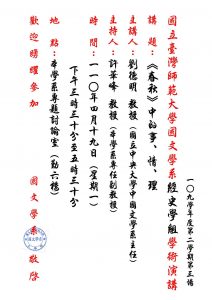 一〇九學年度第二學期第五場
國立臺灣師範大學國文學系經史學組學術演講
講題：《春秋》中的事、情、理
主講人：劉德明 教授（國立中央大學中國文學系主任）
主持人：許華峰 教授（本學系專任副教授）
時間：一一〇年四月十九日（星期一）
下午三時三十分至五時三十分
地點：本學系專題討論室（勤六樓）
歡迎踴躍參加 國文學系 敬啟